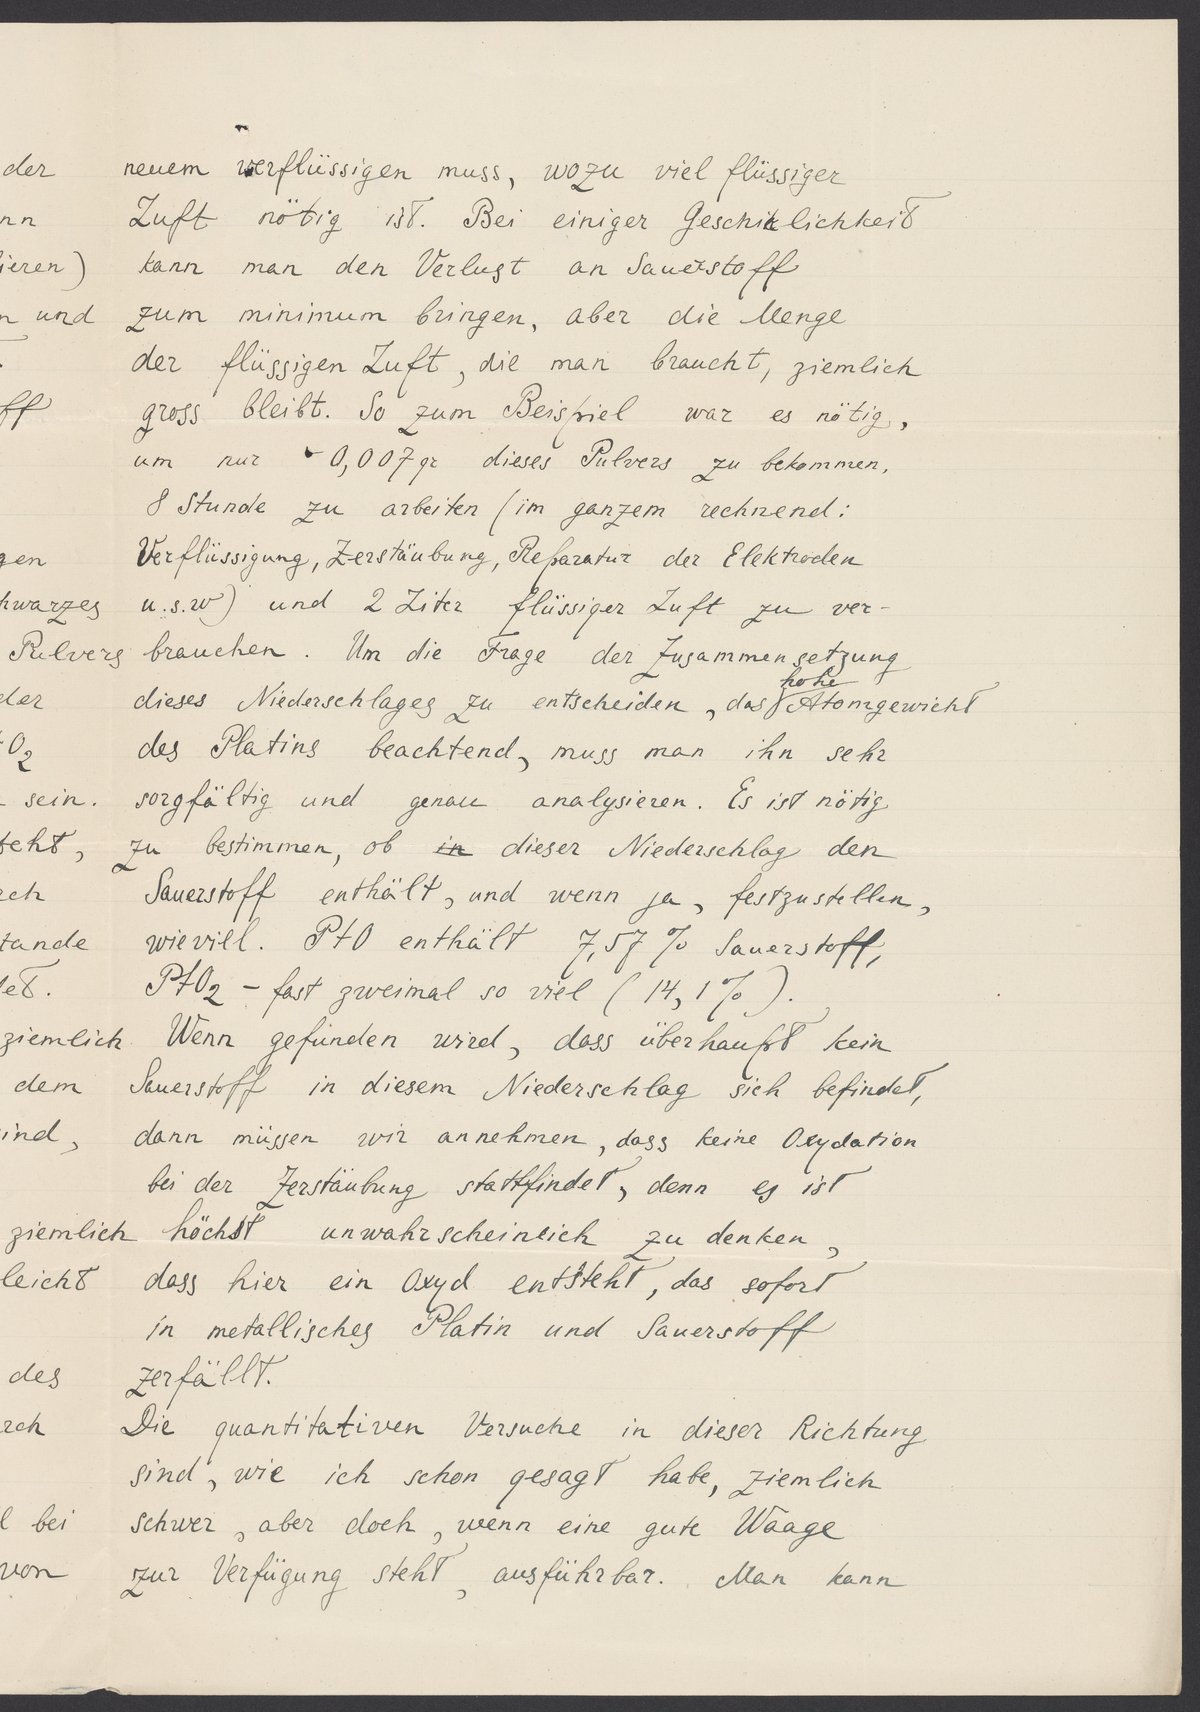 der
neuem verflüssigen muss, wozu viel flüssiger
nn
Luft nötig ist. Bei einiger Geschiklichkeit
ieren)
kann man den Verlust an Sauerstoff
n und
zum minimum bringen, aber die Menge
der flüssigen Luft, die man braucht, ziemlich
ff
gross bleibt. So zum Beispiel war es nötig,
um nur 0,007 gr dieses Pulvers zu bekommen,
8 Stunde zu arbeiten (im ganzem rechnend:
gen
Verflüssigung, Zerstäubung, Reparatur der Elektroden
hwarzes
u.s.w) und 2 Liter flüssiger Luft zu ver-
Pulvers
brauchen. Um die Frage der Zusammensetzung
der
dieses Niederschlages zu entscheiden, das hohe Atomgewicht
tO2
des Platins beachtend, muss man ihn sehr
sein.
sorgfältig und genau analysieren. Es ist nötig
teht,
zu bestimmen, ob in dieser Niederschlag den
rch
Sauerstoff enthält, und wenn ja, festzustellen,
tande
wieviell. PtO enthält 7,57 % Sauerstoff,
det.
PtO2 – fast zweimal so viel (14,1 %).
ziemlich
Wenn gefunden wird, dass überhaupt kein
dem
Sauerstoff in diesem Niederschlag sich befindet,
ind,
dann müssen wir annehmen, dass keine Oxydation
bei der Zerstäubung stattfindet, denn es ist
ziemlich
höchst unwahrscheinlich zu denken,
leicht
dass hier ein Oxyd entsteht, das sofort
in metallisches Platin und Sauerstoff
des
zerfällt.
rch
Die quantitativen Versuche in dieser Richtung
sind, wie ich schon gesagt habe, ziemlich
l bei
schwer, aber doch, wenn eine gute Waage
von
zur Verfügung steht, ausführbar. Man kann